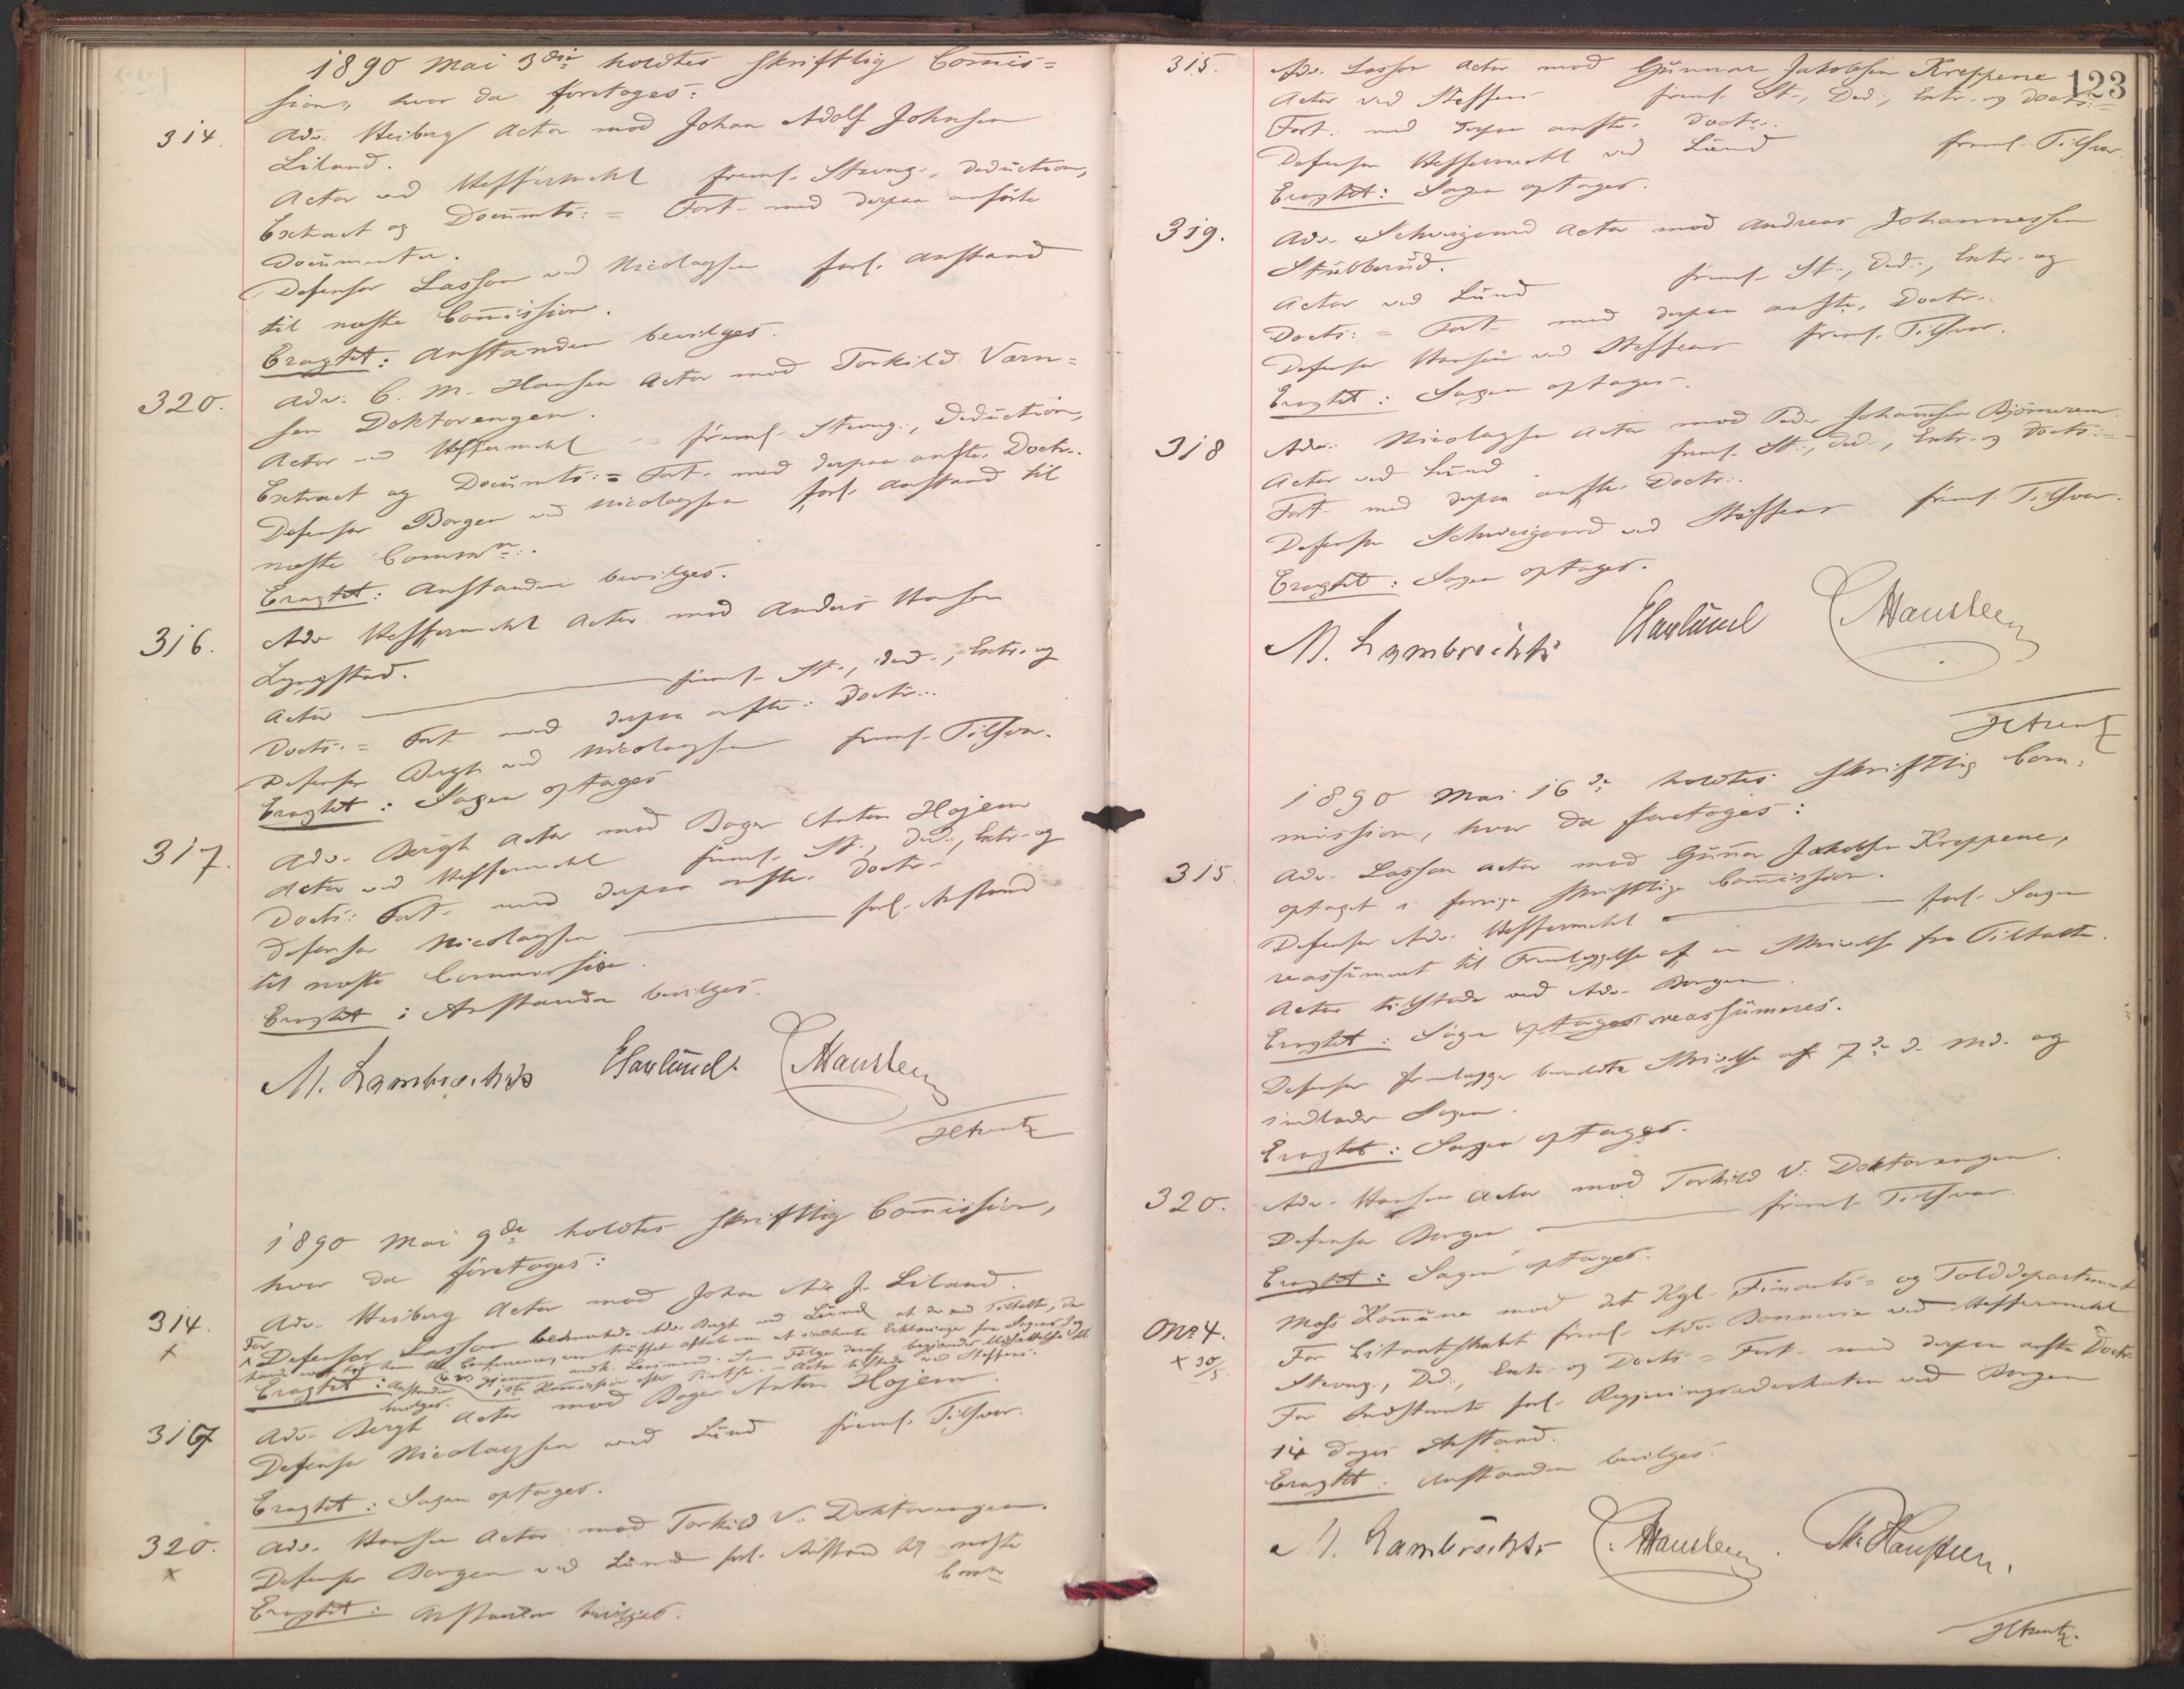 1890 Mai 3die holdtes skriftlig Commis=
sion, hvor da foretoges:
314. Adv. Heiberg Actor mod Johan Adolf Johnsen
Liland.
Actor ved Heffermehl freml. Stevng., Deduction,
Extract og Documts: = Fort. med derpaa anførte
Documenter.
Defensor Lasson ved Nicolaysen forl. Anstand
til næste Commission.
Eragtet: Anstanden bevilges.
320. Adv. C. M. Hansen Actor mod Torkild Værn=
sen Doktorengen.
Actor ved Heffermehl freml. Stevng., Deduction,
Extract og Documts: = Fort. med derpaa anfte. Doctr.
Defensor Borgen ved Nicolaysen forl. Anstand til
næste Commn.
Eragtet: Anstanden bevilges.
316. Adv Heffermehl Actor mod Anders Hansen
Lyngstad.
Actor freml. St., Ded., Extr. og
Docts: = Fort. med derpaa anfte. Doctr.
Defensor Bergh ved Nicolaysen freml. Tilsvar.
Eragtet: Sagen optages
317. Adv. Bergh Actor mod Bager Anton Hojem
Actor ved Heffermehl freml. St., Ded., Extr. og
Docts: Fort. med derpaa anfte. Doctr.
Defensor Nicolaysen forl. Anstand
til næste Commission.
Eragtet: Anstanden bevilges.
M. Lambrechts E Harlund C Hansteen
1890 Mai 9de holdtes skriftlig Commission,
hvor da foretoges:
314. Adv. Heiberg Actor mod Johan Ad. J. Liland.
x For Defensor Lasson bemærkede Adv. Bergh ved Lund at der med Tiltalte, der
Eragtet: Anstanden
bevilges.
317 Adv. Bergh Actor mod Bager Anton Hojem.
Defensor Nicolaysen ved Lund freml. Tilsvar.
Eragtet: Sagen optages.
320. Adv. Hansen Actor mod Torkild V. Doktorengen.
x Defensor Borgen ved Lund forl. Anstand til næste
Commn
Eragtet: Anstanden bevilges.
123
315. Adv. Lasson Actor mod Gunnar Jakobsen Kreppene
Actor ved Steffens freml. St., Ded., Extr. og Docts: =
Fort. med derpaa anfte. Doctr.
Defensor Heffermehl ved Lund freml. Tilsvar.
Eragtet: Sagen optages.
319. Adv. Schweigaard Actor mod Andreas Johannessen
Stubberud.
Actor ved Lund freml. St., Ded., Extr. og
Docts: = Fort. med derpaa anfte. Doctr.
Defensor Hansen ved Steffens freml. Tilsvar.
Eragtet: Sagen optages.
318 Adv. Nicolaysen Actor mod Peder Johannsen Bjørnerem.
Actor ved Lund freml. St., Ded., Extr. og Docts: =
Fort. med derpaa anfte. Doctr.
Defensor Schweigaard ved Steffens freml. Tilsvar.
Eragtet: Sagen optages.
M. Lambrechts E Harlund C Hansteen
1890 Mai 16de holdtes skriftlig Com=
mission, hvor da foretoges:
315 Adv. Lasson Actor mod Gunnar Jakobsen Kreppene,
optaget i forrige skriftlige Commission.
Defensor Adv. Heffermehl forl. Sagen
reassumeret til Fremlæggelse af en Skrivelse fra Tiltalte.
Actor tilstede ved Adv. Borgen.
Eragtet: Sagen optages reassumeres.
Defensor fremlægger bemeldte Skrivelse af 7de d. Md. og
indlader Sagen.
Eragtet: Sagen optages.
320. Adv. Hansen Actor mod Torkild V. Doktorengen.
Defensor Borgen freml. Tilsvar.
Eragtet: Sagen optages.
No 4. Moss Kommune mod det Kgl. Finants= og Tolddepartement
x 30/5 For Citantskabet freml. Adv. Bonnevie ved Heffermehl
Stevng., Ded., Extr. og Docts = Fort. med derpaa anfte Doctr.
For Indstevnte forl. Regjeringsadvokaten ved Borgen
14 Dages Anstand.
Eragtet: Anstanden bevilges.
M. Lambrechts C. Hansteen. Th. Hansteen.